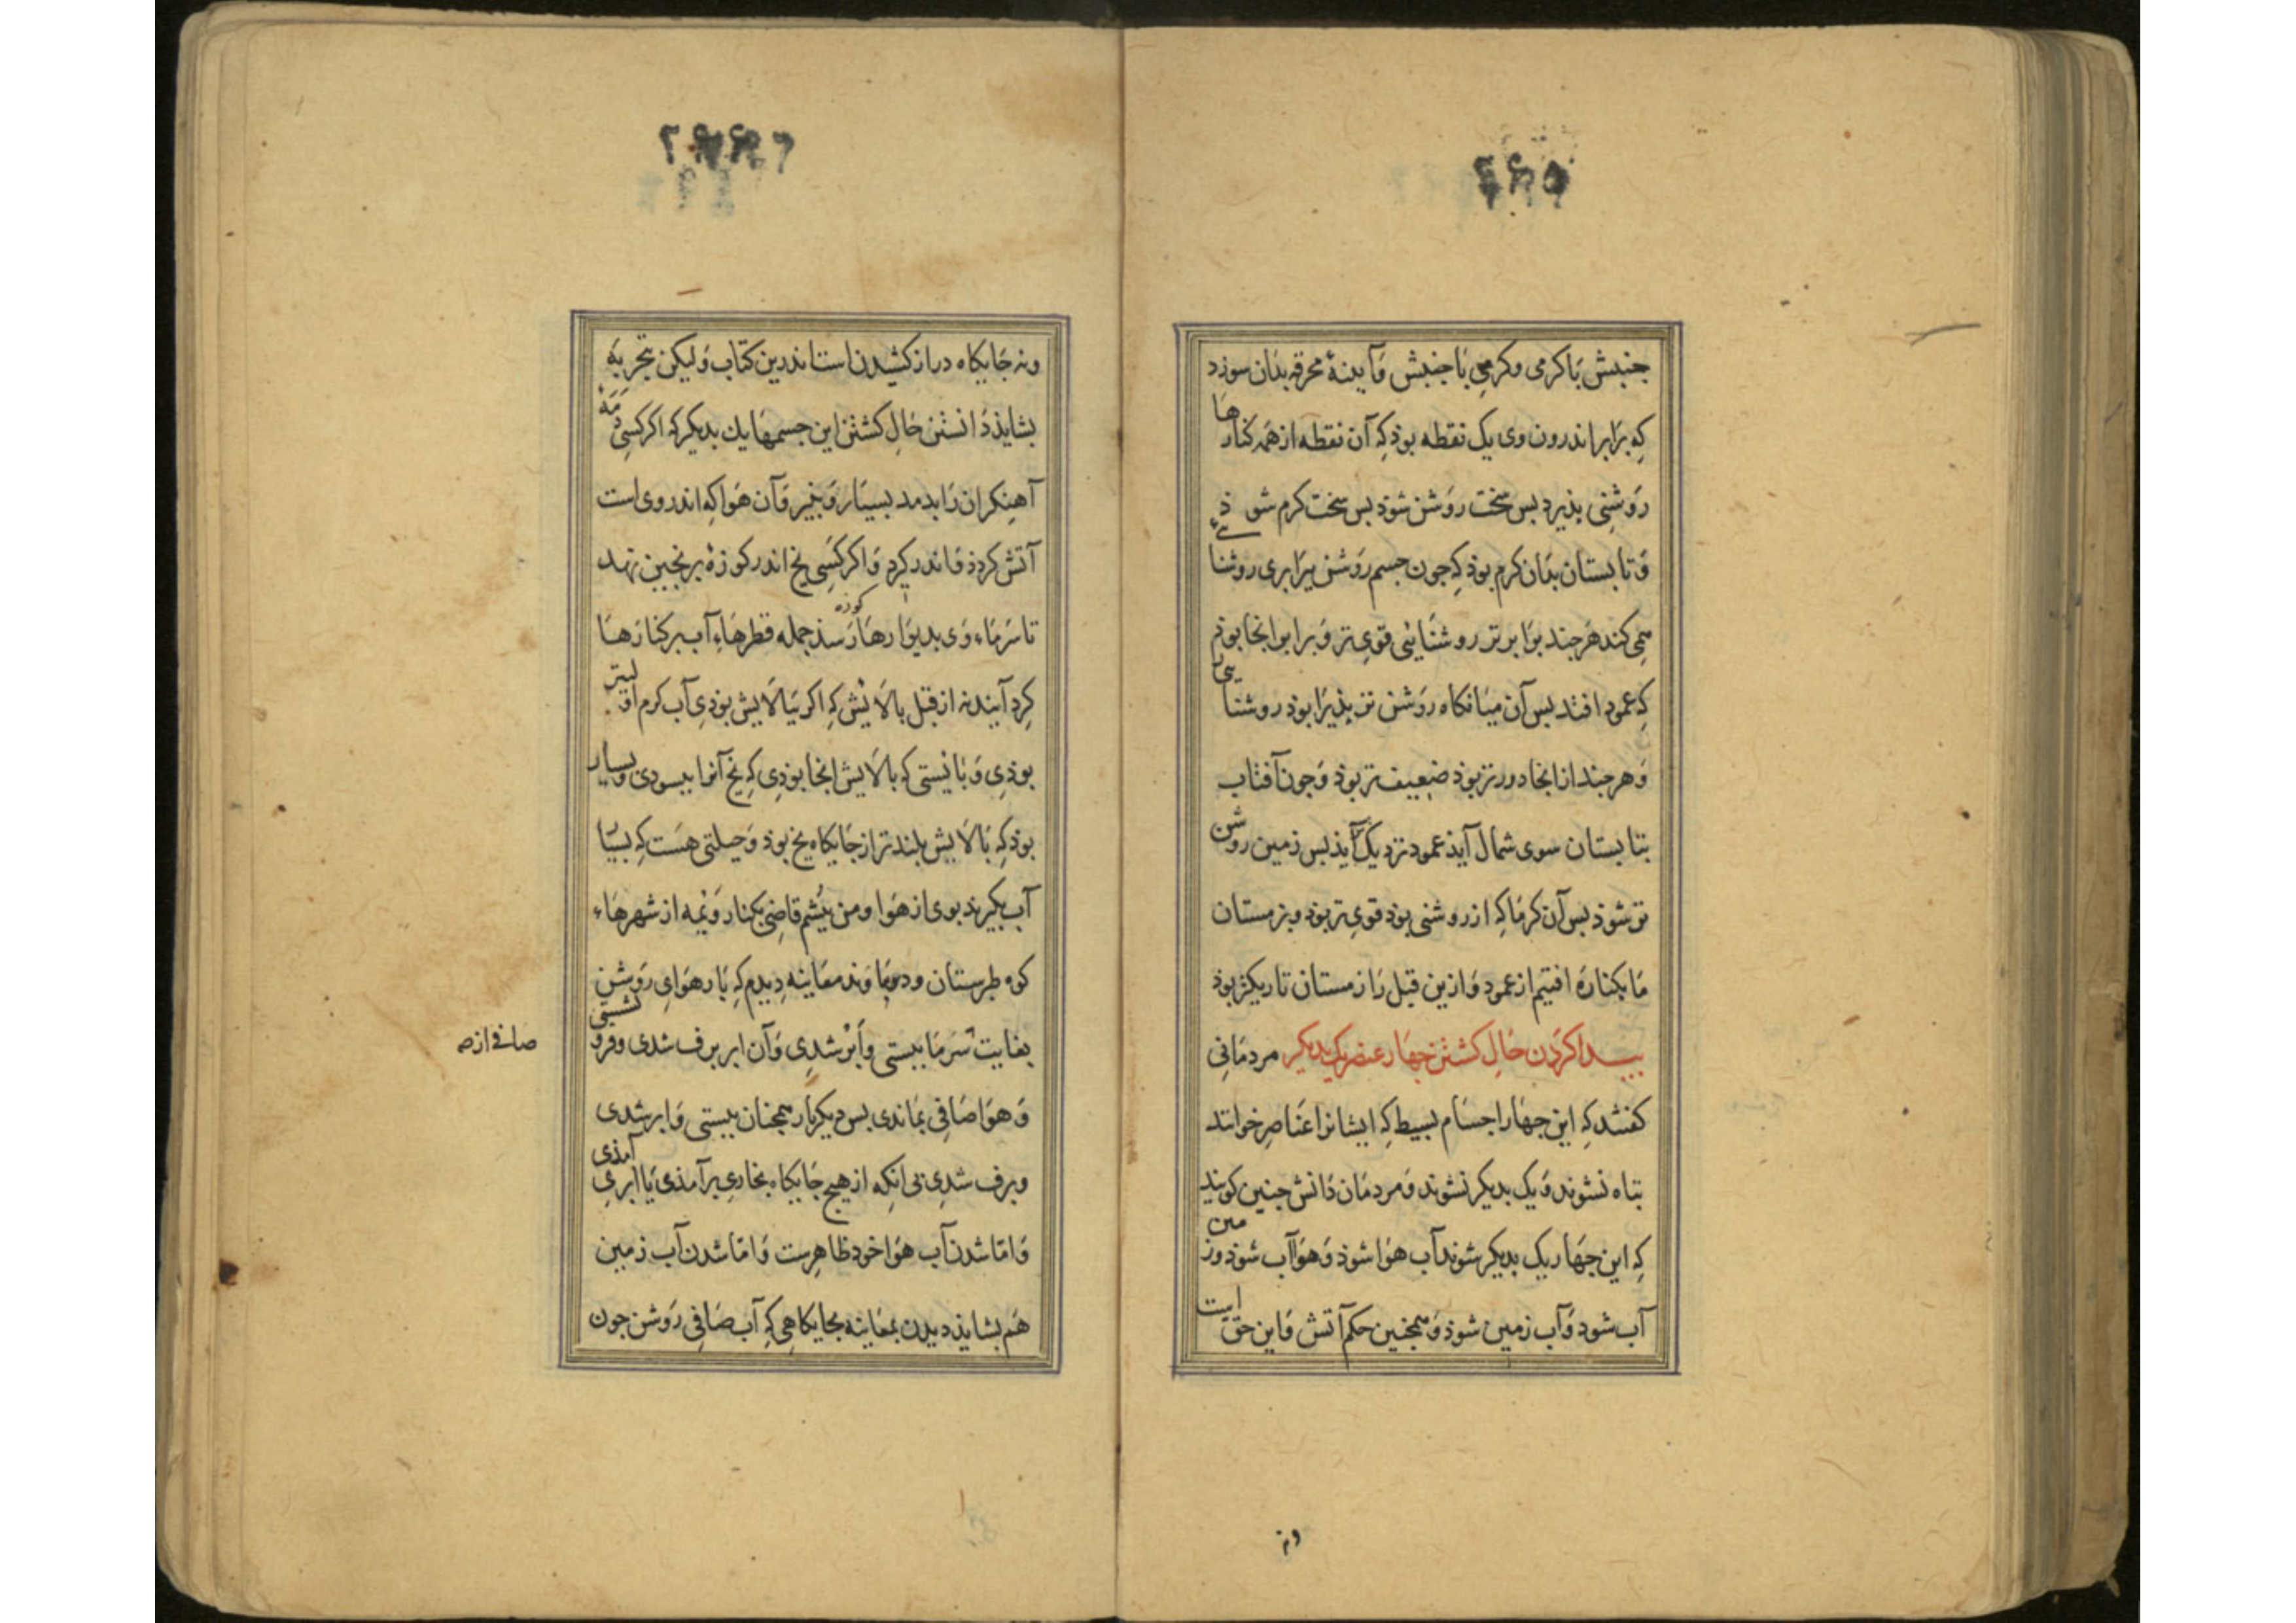 جنبش بَا کرمی و کرمی بَا جنبش وَ آینهٔ محرقه بذان سوزد
کِه بَرابر اندرون وی یک نقطه بوذ کِه آن نقطه از همه کنارها
رَوشنِی بذیرد بس سخت روَشن شوذ بس سخت کرم شوذ
وَ تابستان بذان کرم بوذ کِه جون جسم رَوشن برَابری روشنایی
می کند هَر جند برَابر تر روشنَایی قویِ تر وَ برابر انجا بوذ
کِه عمود افتد بس آن میَانکاه رَوشن تر بذیرَا بوذ روشنایی
وَ هر جند از انجا دورتر بوذ ضعِیف تر بوذ وَ جون آفتاب
بتابستان سوی شمال آیذ عمود نزدیک آیذ بس زمین روشن
تر شوذ بس آن کرمَا کِه از روشنی بوذ قویِ تر بوذ و بزمستان
مَا بکنارَه افتیم از عمود وَ ازین قبل رَا زمستان تاریکتر بوذ
بیدا کرَدن حَالِ کشتن جهَار عنصر یک بدیکر مردمَانِی
کفتند کِه این جهَار اجسَام بسیط کِه ایشانرا عنَاصِر خوانند
تباه نشوند وَ یک بدیکر نشوند وَ مردمَان دَانش جنین کویند
کِه این جهَار یک بدیکر شوند آب هوَا شوذ وَ هوَا آب شوذ و زمین
آب شود وَ آب زمین شوذ وَ همجنین حکم آتش وَ این حق است
ونه
ونه جَایکاه دراز کشیدن است اندرین کتاب وَ لیکن بتجربَه
بشایذ دَانستن حَالِ کشتن این جسمهَا یك بدیکر کِه اکر کسِی دَمَهٔ
آهنکران رَا بدمد بسیَار وَ بنیرو آن هَوا کِه اندر وی است
آتش کردذ وَ اندر کیرد وَ اکر کسَیِ یخ اندر کوزهٔ برنجین نهد
تا سَرمَاء وَی بدیوَارهَا کوزه رَسذ جمله قطرهَاءِ آب بر کنَارَهَا
کِرد آیند نه از قبل بالَایش کِه اکر بَبالَایش بوذیِ آب کرم اولیتر
بوذیِ وَ بَایستی کِه بالَایش انجا بوذیِ کِه یخ آنرا ببسودی و بسیار
بوذ کِه بَالَایش بلند تر از جَایکاه یخ بوذ وَ حیلتی هسَت کِه بسیَار
آب بکیرند بوی از هَوا و من بیشم قاضِی بکنار وَیمه از شهرهَاءِ
کوه طبرستان و دماوند معَاینه دِیدم کِه بَارِ هوَایِ رَوشن
بغایت سَرمَا ببستی وَ اَبر شدِی وَ آن ابر برف شدی و فرو نشستی
صافی از
وَ هوَا صَافِی بمَاندی بس دیکر بَار همجنان ببستی وَ ابر شدی
وبرف شدِی بی انکِه از هیج جَایکاه بخاریِ بر آمذی یَا ابریِ آمذی
وَ امّا شدن آب هوَا خود ظاهِرست وَ امّا شدن آب زمین
هَم بشایذ دیدن بمعَاینه بجایکاهِی کِه آب صَافیِ رَوشن جون